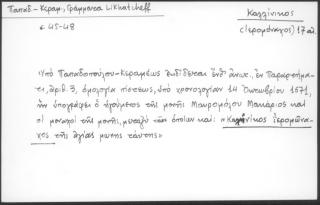 Παπαδ-Κεραμ, Γράμματα Likhatcheff
Καλλίνικος
σ 45-48
(ἱερομόναχος) 17 αἰ.
«Ὑπὸ Παπαδοπούλου-Κεραμέως ἐκδίδεται ἔνθ' ἄνωτ., ἐν Παραρτήμα-
τι, ἀριθ. 3, ὁμολογία πίστεως, ὑπὸ χρονολογίαν 14 Ὀκτωβρίου 1671,
ἣν ὑπογράφει ὁ ἡγούμενος τῆς μονῆς Μαυρομόλου Μακάριος καὶ
οἱ μοναχοὶ τῆς μονῆς, μεταξὺ τῶν ὁποίων καί: «Καλλίνικος ἱερομόνα-
χος τῆς ἁγίας μονῆς ταύτης»